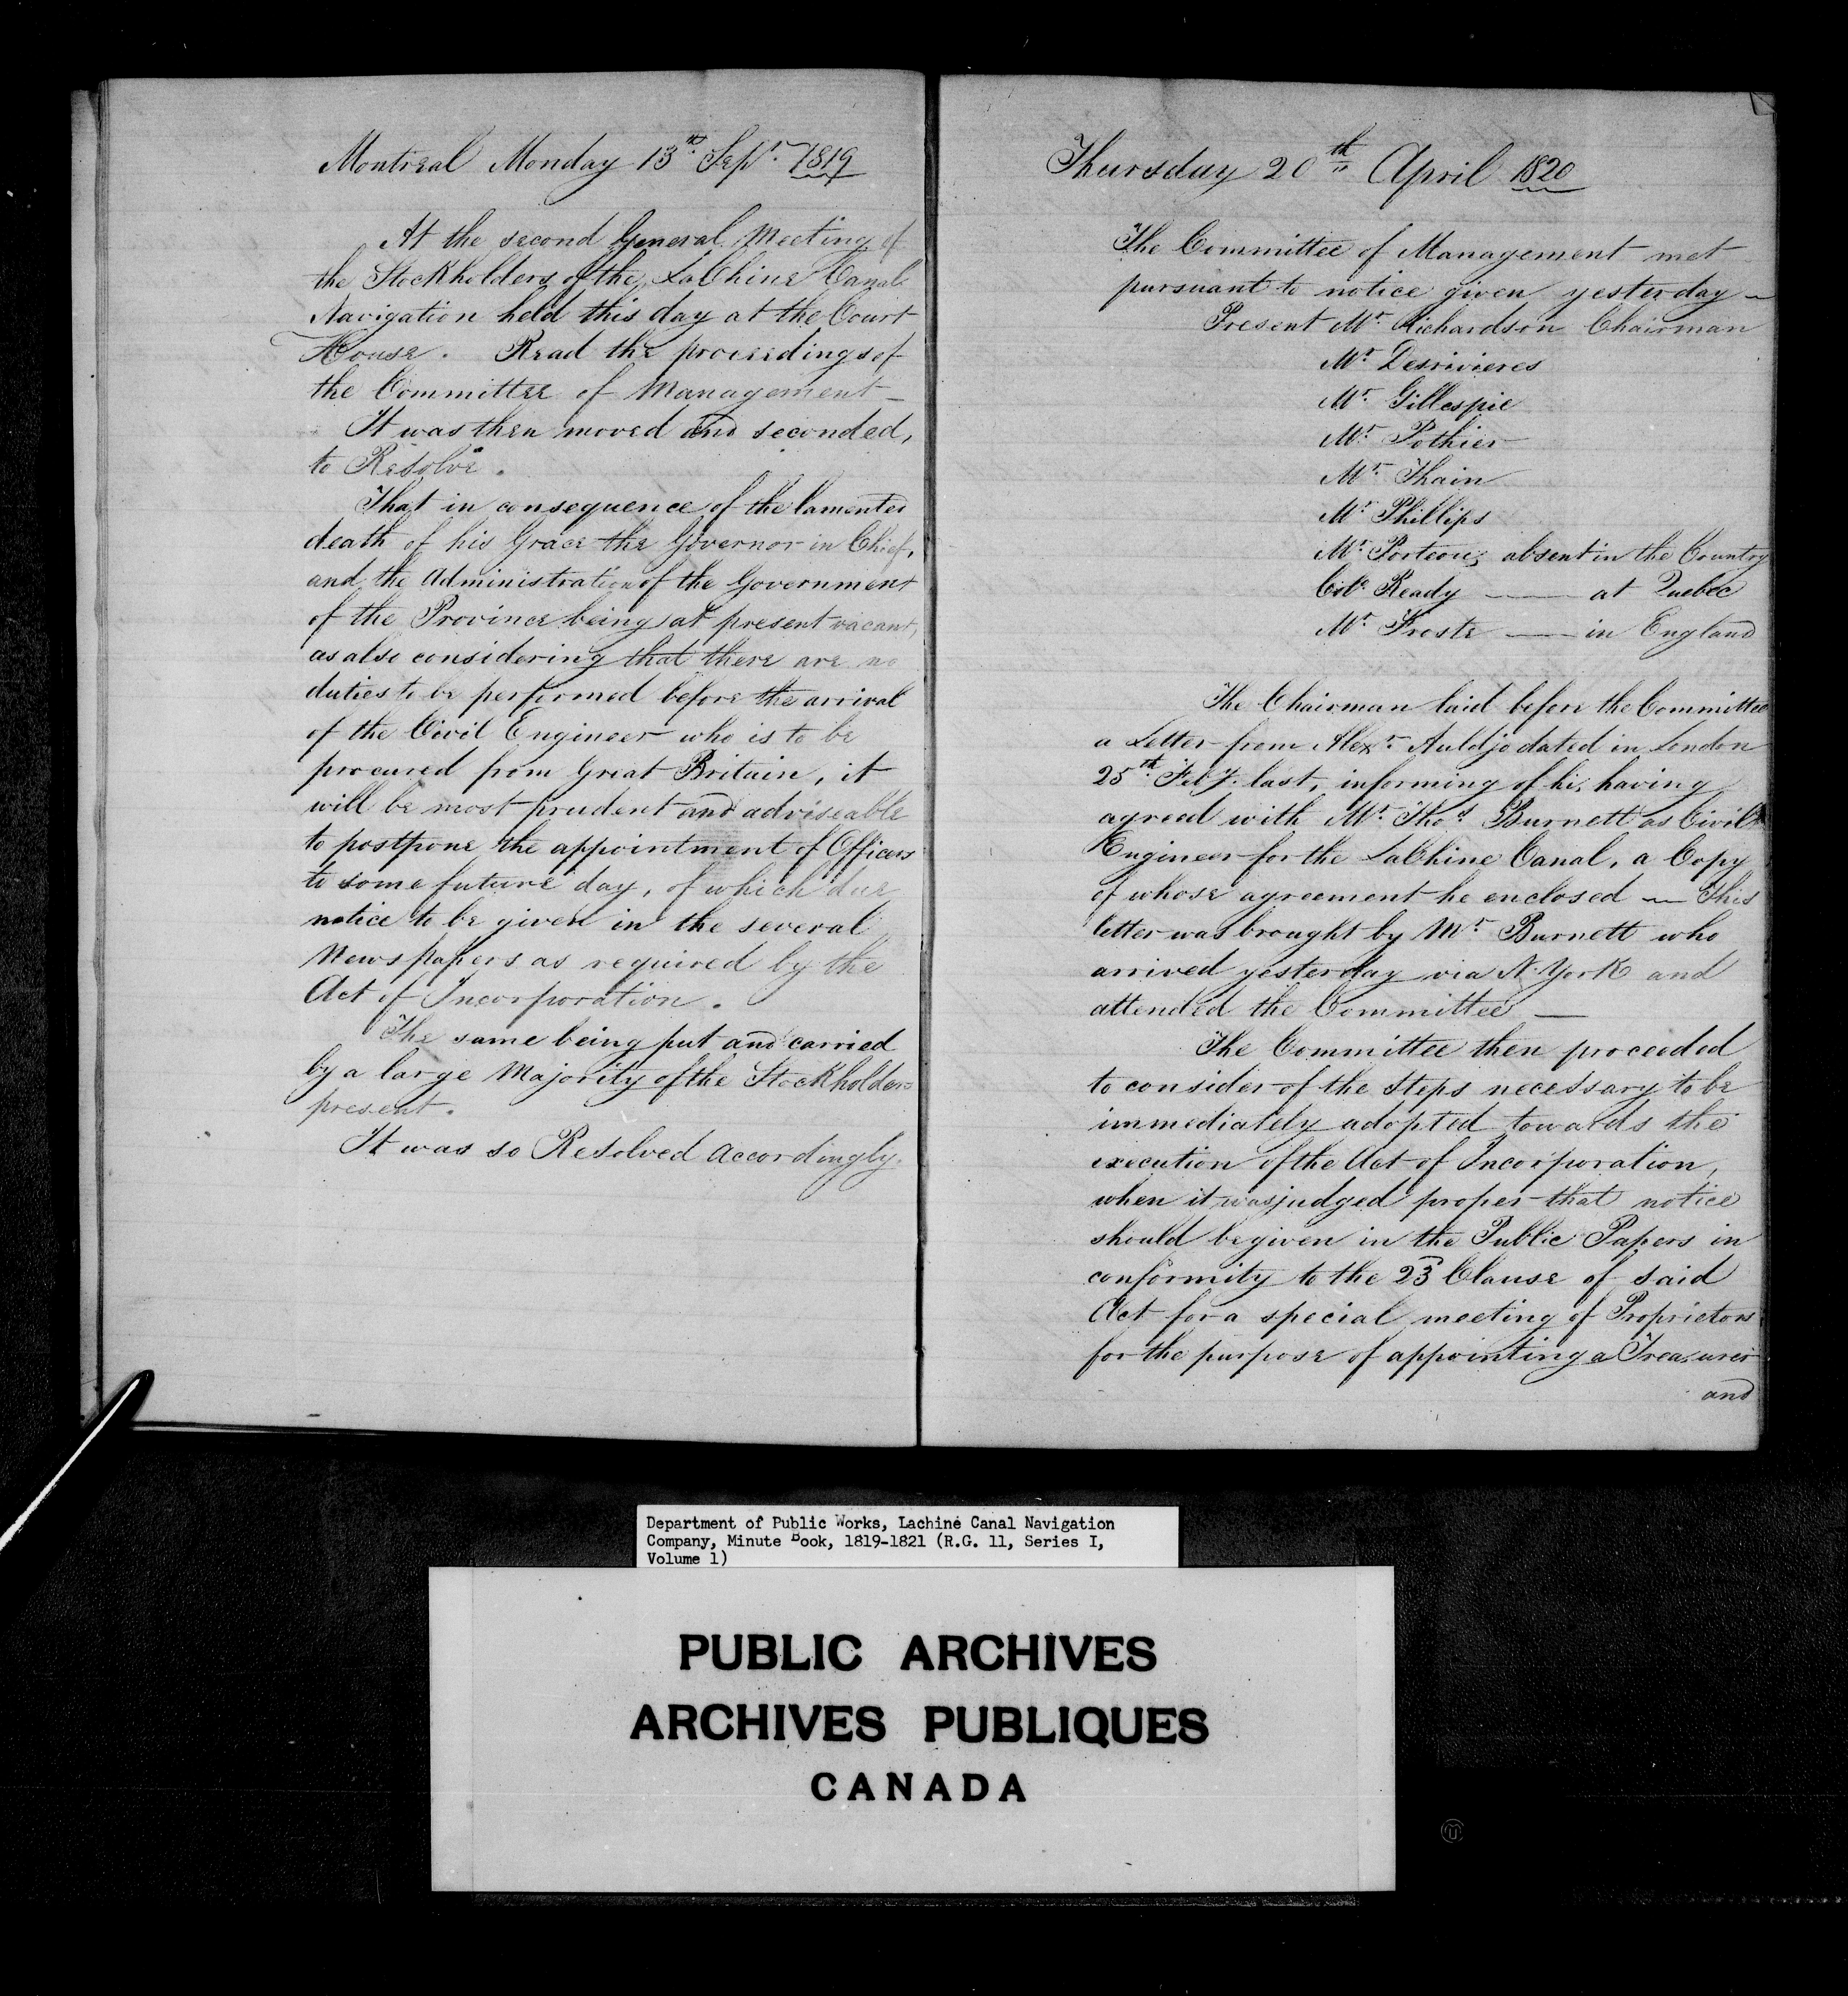 Montreal Monday 13th Sept. 1819
At the second General Meeting of
the Stockholders of the LaChine Canal
Navigation held this day at the Court
House. Read the proceedings of
the Committee of Management —
It was then moved and seconded,
to Resolve.
That in consequence of the lamented
death of his Grace the Governor in Chief,
and the Administration of the Government
of the Province being at present vacant,
as also considering that there are no
duties to be performed before the arrival
of the Civil Engineer who is to be
procured from Great Britain, it
will be most prudent and adviseable
to postpone the appointment of Officers
to some future day, of which due
notice to be given in the several
Newspapers as required by the
Act of Incorporation.
The same being put and carried
by a large Majority of the Stockholders
present.
It was so Resolved accordingly.
Thursday 20th April 1820
The Committee of Management met
pursuant to notice given yesterday —
Present Mr. Richardson Chairman
Mr. Desrivieres
Mr. Gillespie
Mr. Pothier
Mr. Thain
Mr. Phillips
Mr. Porteous absent in the Country
Col. Ready — at Quebec
Mr. Froste — in England
The Chairman laid before the Committee
a Letter from Alexr. Auldjo dated in London
25th Feby. last, informing of his having
agreed with Mr. Thos. Burnett as Civil
Engineer for the LaChine Canal, a Copy
of whose agreement he enclosed — This
letter was brought by Mr. Burnett who
arrived yesterday via N. York and
attended the Committee —
The Committee then proceeded
to consider of the Steps necessary to be
immediately adopted towards the
execution of the Act of Incorporation,
when it was judged proper that notice
should be given in the Public Papers in
conformity to the 23d Clause of said
Act for a special meeting of Proprietors
for the purpose of appointing a Treasurer
and
Department of Public Works, Lachine Canal Navigation
Company, Minute Book, 1819-1821 (R.G. 11, Series I,
Volume 1)
PUBLIC ARCHIVES
ARCHIVES PUBLIQUES
CANADA